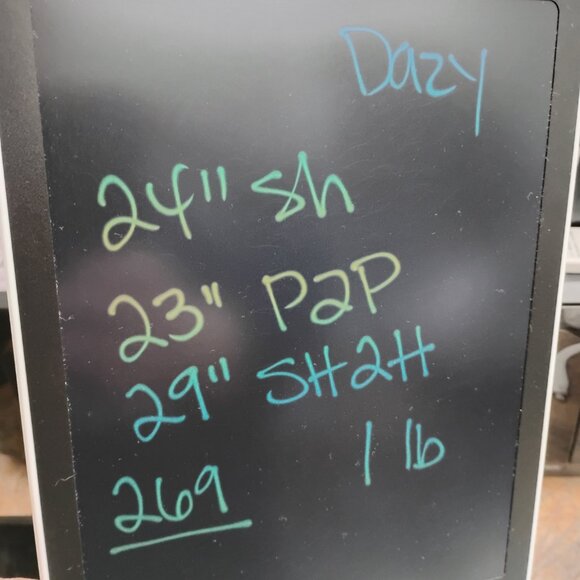 Dazy
24" Sh
23" P2P
29" SH2H
1 lb
269